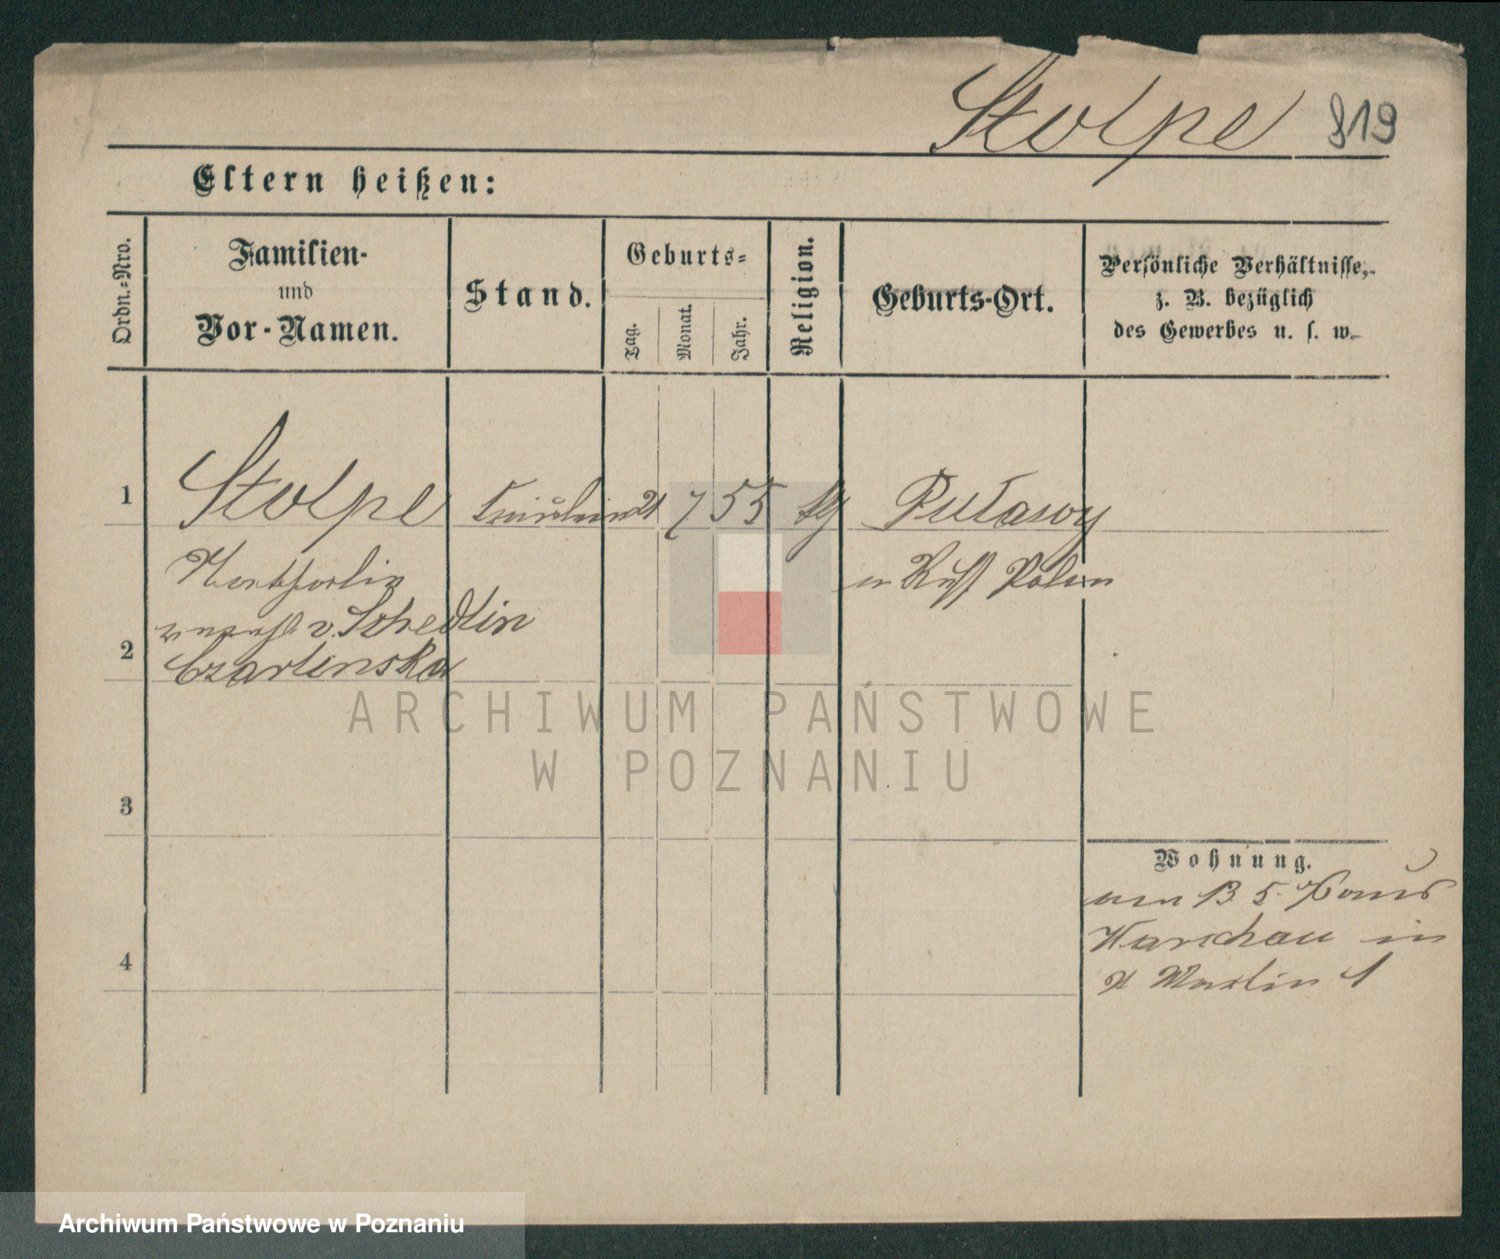 Stolpe 819
Eltern heißen:
Ordn.-Nro.
Familien-
und
Vor-Namen.
Stand.
Geburts-
Tag.
Monat.
Jahr.
Religion.
Geburts-Ort.
Persönliche Verhältnisse,
z. B. bezüglich
des Gewerbes u. s. w.
1 Stolpe Fräulein 21 7 55 Puławy
in Russ Polen
v. Schedlin
2 Czarlinska
ARCHIWUM PAŃSTWOWE
W POZNANIU
3
Wohnung.
5.
Warschau in
4
Archiwum Państwowe w Poznaniu